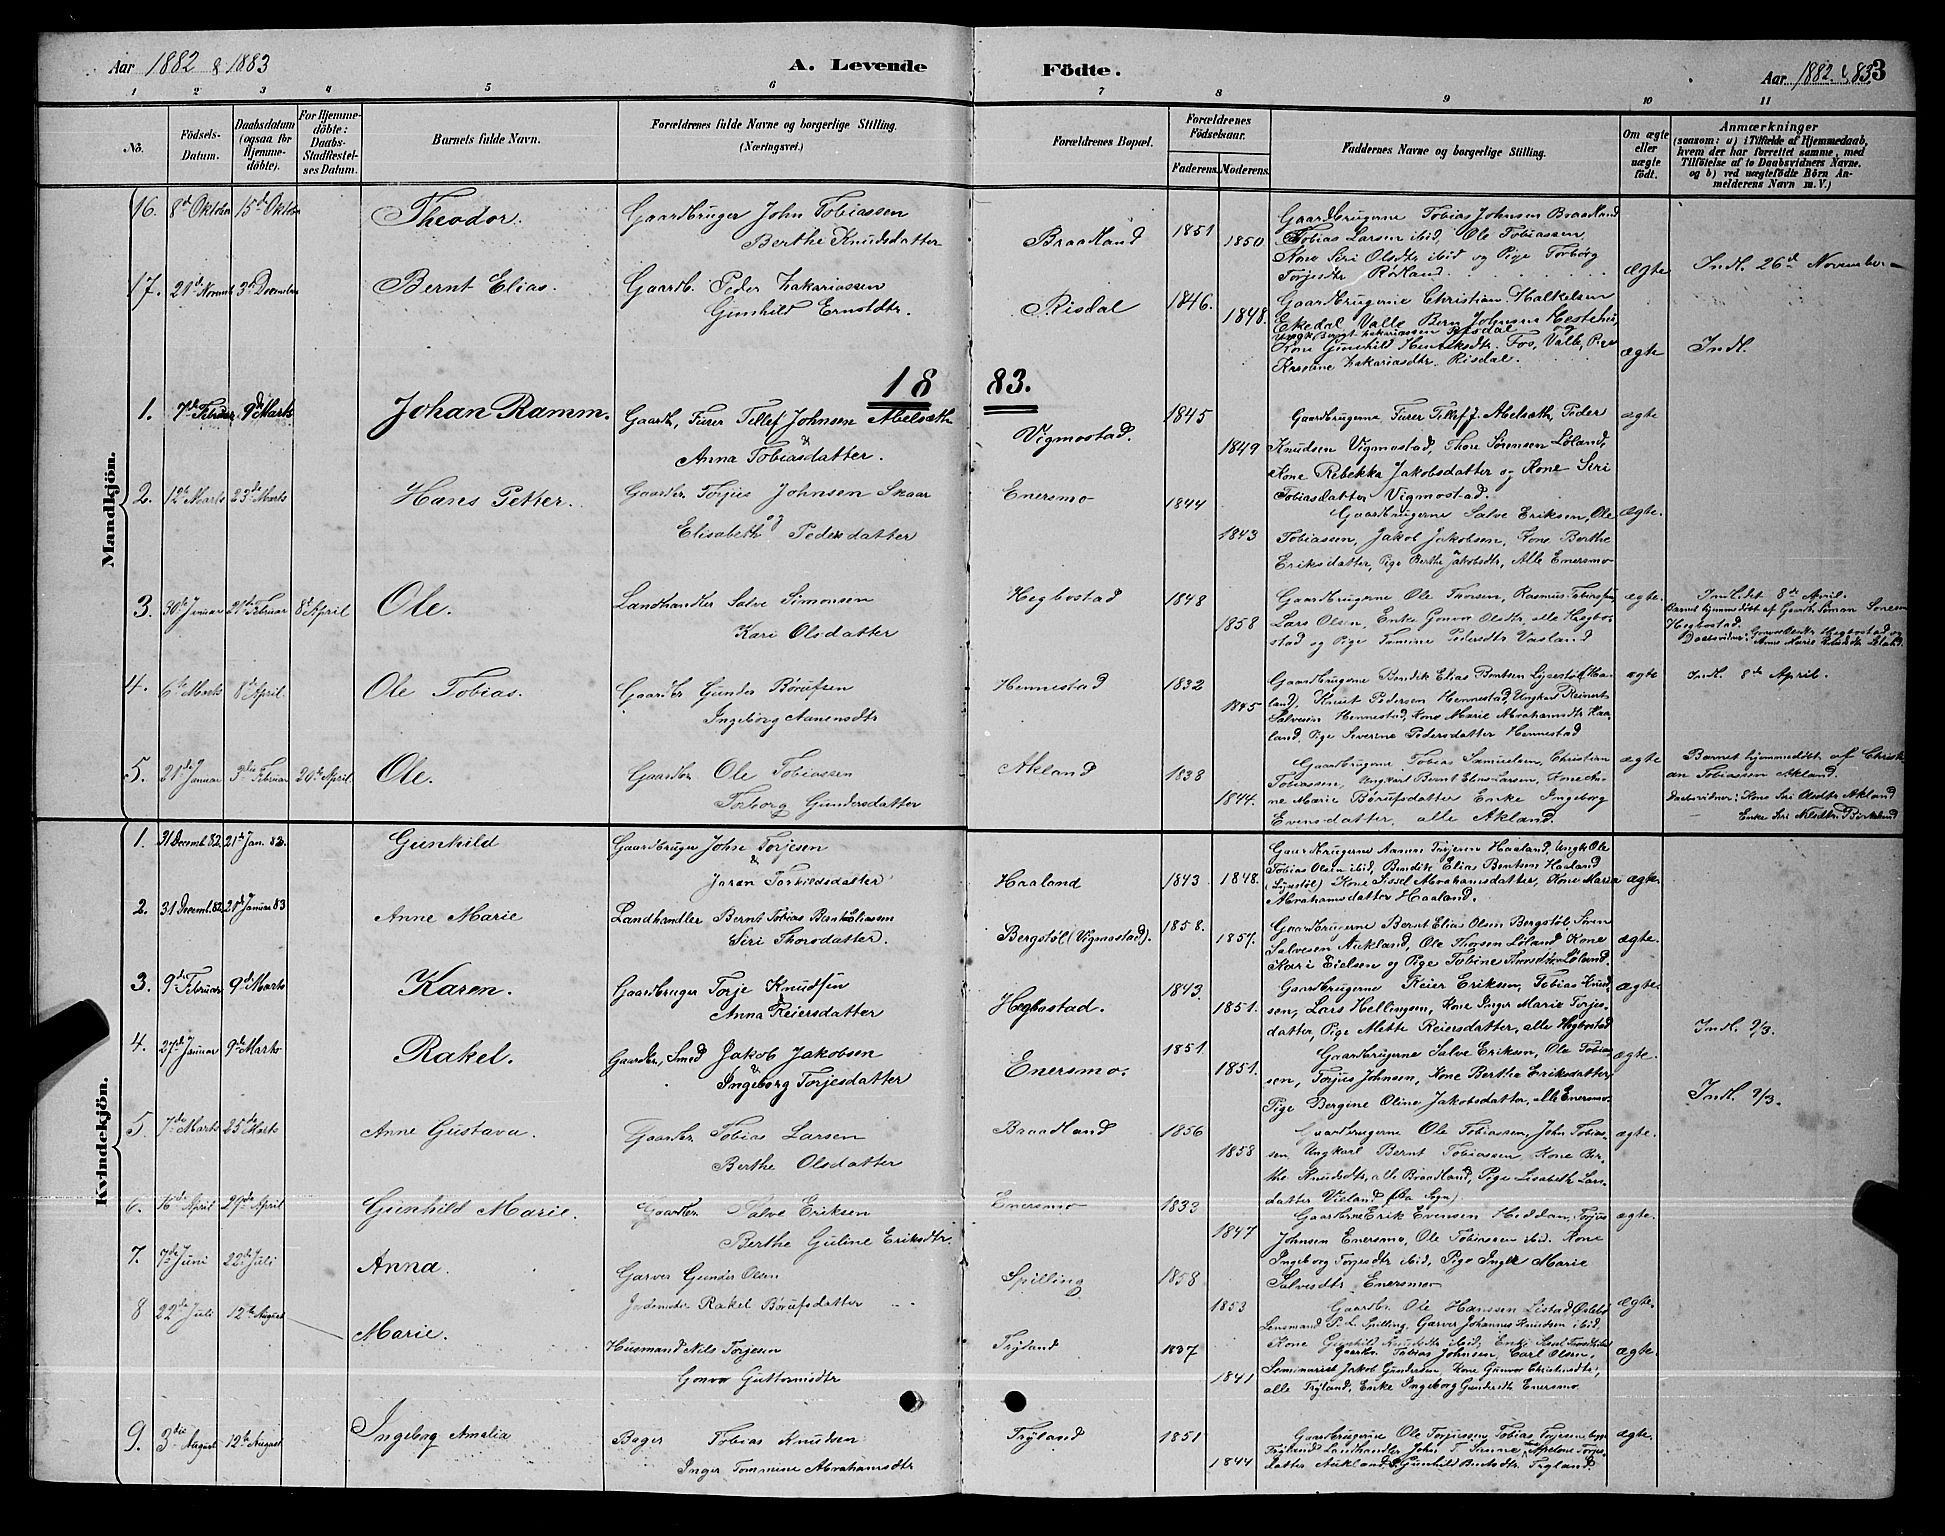 Aar 1882 & 1883
A. Levende Födte.
Aar 1882 & 83 3
1 2 3 4 5 6 7 8 9 10 11
No. Födsels-Datum. Daabsdatum (ogsaa for Hjemmedöbte). For Hjemmedöbte: Daabs-Stadfæstelses Datum. Barnets fulde Navn. Forældrenes fulde Navne og borgerlige Stilling. (Næringsvei.) Forældrenes Bopæl. Forældrenes Födselsaar. Faderens. Moderens. Faddernes Navne og borgerlige Stilling. Om ægte eller uægte födt. Anmærkninger (saasom: a) i Tilfælde af Hjemmedaab, hvem der har forrettet samme, med Tilföielse af to Daabsvidners Navne. og b) ved uægtefödte Börn Anmelderens Navn m. V.)
Mandkjön.
16. 8de Oktober 15de Oktober Theodor. Gaardbruger John Tobiassen
Berthe Knudsdatter
Braadland 1851 1850
Gaardbrugerne Tobias Johnsen Braadland
Tobias Larsen ibid, Ole Tobiassen
Kone Siri Olsdtr ibid og Pige Torborg
Torjesdtr Rödland. Ægte Indl. 26de November
17. 21de Novemb 3de December Bernt Elias. Gaardb. Peder Zakariassen
Gunhild Ernstdtr.
Risdal 1846. 1848.
Gaardbrugerne Christian Halkelsen
Ekedal Valle Bern Johnsen Hestehei,
Ungk Bernt Zakariassen Risdal og
Kone Gunhild Henriksdtr. Fos, Valle, Pige
Zakariasdtr. Risdal. ægte Indl.
1883.
1. 7de Februar 9de Marts Johan Ramm. Gaardb, Furer Tellef Johnsen Abelsæth
&
Anna Tobiasdatter.
Vigmostad. 1845 1849
Gaardbrugerne Furer Tellef J. Abelsæth, Peder
Knudsen Vigmostad, Thore Sörensen Löland,
Kone Rebekka Jakobsdatter og Kone Siri
Tobiasdatter Vigmostad. ægte
2. 12te Marts 23de Marts Hans Petter. Gaardbr. Torjus Johnsen Skaar
og
Elisabeth Pedersdatter
Enersmo 1844 1843
Gaardbrugerne Salve Eriksen, Ole
Tobiassen, Jakob Jakobsen, Kone Berthe
Eriksdatter, Pige Berthe Jakobsdtr, Alle Enersmo ægte.
3. 30te Januar 21de Februar 8de April Ole. Landhandler Salve Simonsen
Kari Olsdatter
Hegbostad 1848 1858
Gaardbrugerne Ole Thorsen, Rasmus Tobiassen,
Lars Olsen, Enke Gonvor Olsdtr, alle Hegbo-
stad og Pige Tomine Pedersdtr Vasland ægte.
Indl. det 8de April.
Barnet hjemmedöbt af Gaardb. Simon
Hegbostad.
Daabsvidner: Hegbostad og
Anne Marie
4. 6te Marts 8de April. Ole Tobias. Gaardbr Gunder Börufsen
Ingeborg Aanensdtr
Hennestad 1832 1845
Gaardbrugerne Bendik Elias Bentsen Lysestöl (Haa-
land), Knut Pedersen Hennestad, Ungkarl Reinert
Salvesen Hennestad, Kone Marie Abrahamsdtr Haa-
land, Pige Severine Pedersdatter Hennestad ægte Indl. 8de April.
5. 21de Januar 3die Februar 20de April Ole. Gaardbr. Ole Tobiassen
Torborg Gundersdatter
Akland 1838 1844.
Gaardbrugerne Tobias Samuelsen, Christian
Tobiassen, Ungkarl Bernt Elias Larsen, Kone An-
ne Marie Börufsdatter Enke Ingeborg
Evensdatter, alle Akland. ægte
Barnet hjemmedöbt af Christi-
an Tobiassen Akland.
Daabsvidner: Kone Siri Olsdtr Akland
Enke Siri Nilsdtr. Birkeland
Kvindekjön.
1. 31 Decemb. 82. 21de Jan. 83. Gunhild Gaardbruger John Torjesen
&
Joren Torkildsdatter
Haaland 1843 1848.
Gaardbrugerne Aanen Torjesen Haaland, Ungk Ole
Tobias Olsen ibid, Bendik Elias Bentsen Haaland
(Lysestöl) Kone Sissel Abrahamsdatter, Kone Maria
Abrahamsdatter Haaland. ægte.
2. 31 Decemb. 82 21de Januar 83 Anne Marie Landhandler Bernt Tobias Berntsen
Siri Thorsdatter.
Bergstöl (Vigmostad). 1858. 1857.
Gaardbrugerne Bernt Elias Olsen Bergstöl, Sören
Salvesen Aukland, Ole Thorsen Löland Kone
Kari Eielsen og Pige Tobine Thorsdtr Löland. ægte.
3. 9de Februar 9de Marts Karen. Gaardbruger Torje Knudsen
&
Anna Reiersdatter
Hegbostad. 1843. 1851.
Gaardbrugerne Reier Eriksen, Tobias Knud-
sen, Lars Hellingsen, Kone Inger Marie Torjes-
datter, Pige Mette Reiersdatter, alle Hegbostad ægte. Indl. 9/3.
4. 27de Januar 9de Marts Rakel. Gaardbr., Smed Jakob Jakobsen
&
Ingeborg Torjesdatter
Enersmo. 1851. 1851.
Gaardbrugerne Salve Eriksen, Ole Tobias-
sen, Torjus Johnsen, Kone Berthe Eriksdatter
Pige Bergine Oline Jakobsdatter, alle Enersmo. ægte. Indl. 9/3.
5. 7de Marts 25de Marts Anne Gustava. Gaardbr. Tobias Larsen
Berthe Olsdatter
Braadland 1856 1858
Gaardbrugerne Ole Tobiassen, John Tobias-
sen Ungkarl Bernt Tobiassen, Kone Ber-
the Knudsdtr, alle Braadland, Pige Lisabeth Lars-
datter Vieland (Øva Sogn) ægte.
6. 16de April 29de April Gunhild Marie. Gaardbr. Salve Eriksen
Berthe Guline Eriksdtr.
Enersmo 1833 1847
Gaardbrne Erik Evensen Heddan, Torjus
Johnsen Enersmo, Ole Tobiassen ibid. Kone
Ingeborg Torjesdtr ibid, Pige Inger Marie
Salvesdtr. Enersmo ægte.
7. 7de Juni 22de Juli Anna. Garver Gunder Olsen
Jordemoder Rakel Börufsdatter
Spilling 1858 1853
Gaardbr. Ole Hanssen Listad Öslebö
Lensmand P. L. Spilling, Garver Johannes Knudsen ibid,
Kone Gunhild Knudsdtr ibid; ægte.
8 22de Juli 12te August Marie. Husmand Nils Torjesen
Gonvor Guttormsdtr
Tryland 1837 1841
Gaardbr. Tobias Johnsen, Carl Olsen,
Seminarist Jakob Gundersen, Kone Gunvor Christensdtr,
alle Tryland, Enke Ingeborg Gundersdtr Enersmo. ægte.
9. 3die August 12te August Ingeborg Amalia Bager Tobias Knudsen
Inger Tommine Abrahamsdtr
Tryland 1851 1844
Gaardbrugerne Ole Torjussen, Tobias Torjesen begge
Tryland, Landhandler John T. Sunne,
datter Aukland, Gunhild Tryland. ægte.